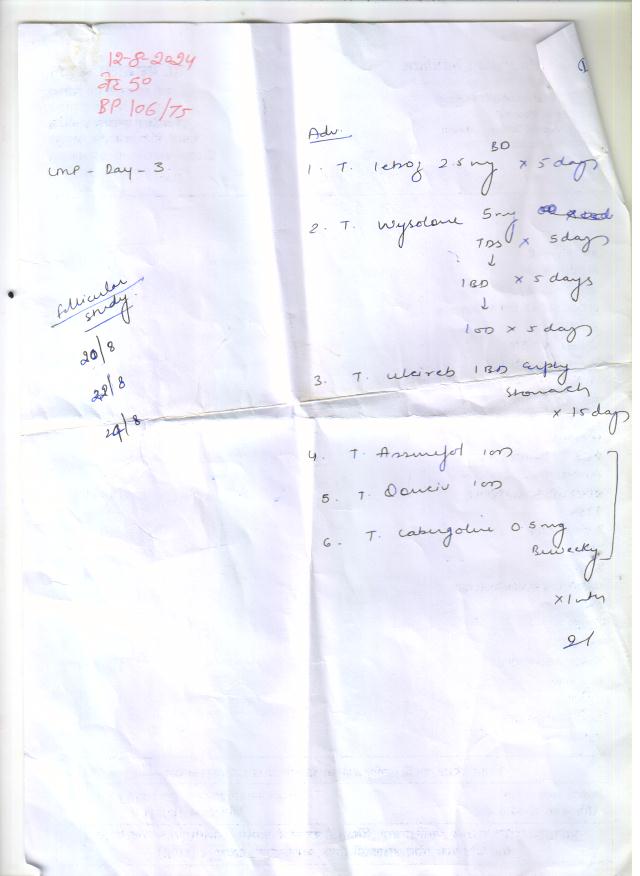 12-8-2024
वेट 50
BP 106/75
LMP - Day - 3
Adv.
1. T. letroz 2.5 mg BD x 5 days
2. T. Wysolone 5mg
TDS x 5 days
↓
1 BD x 5 days
↓
1 OD x 5 days
Follicular
study
20/8
22/8
24/8
3. T. 1 BD empty
stomach
x 15 days
4. T. 1 OD
5. T. 1 OD
6. T. Cabergoline 0.5 mg
Biweekly
x 1 mth